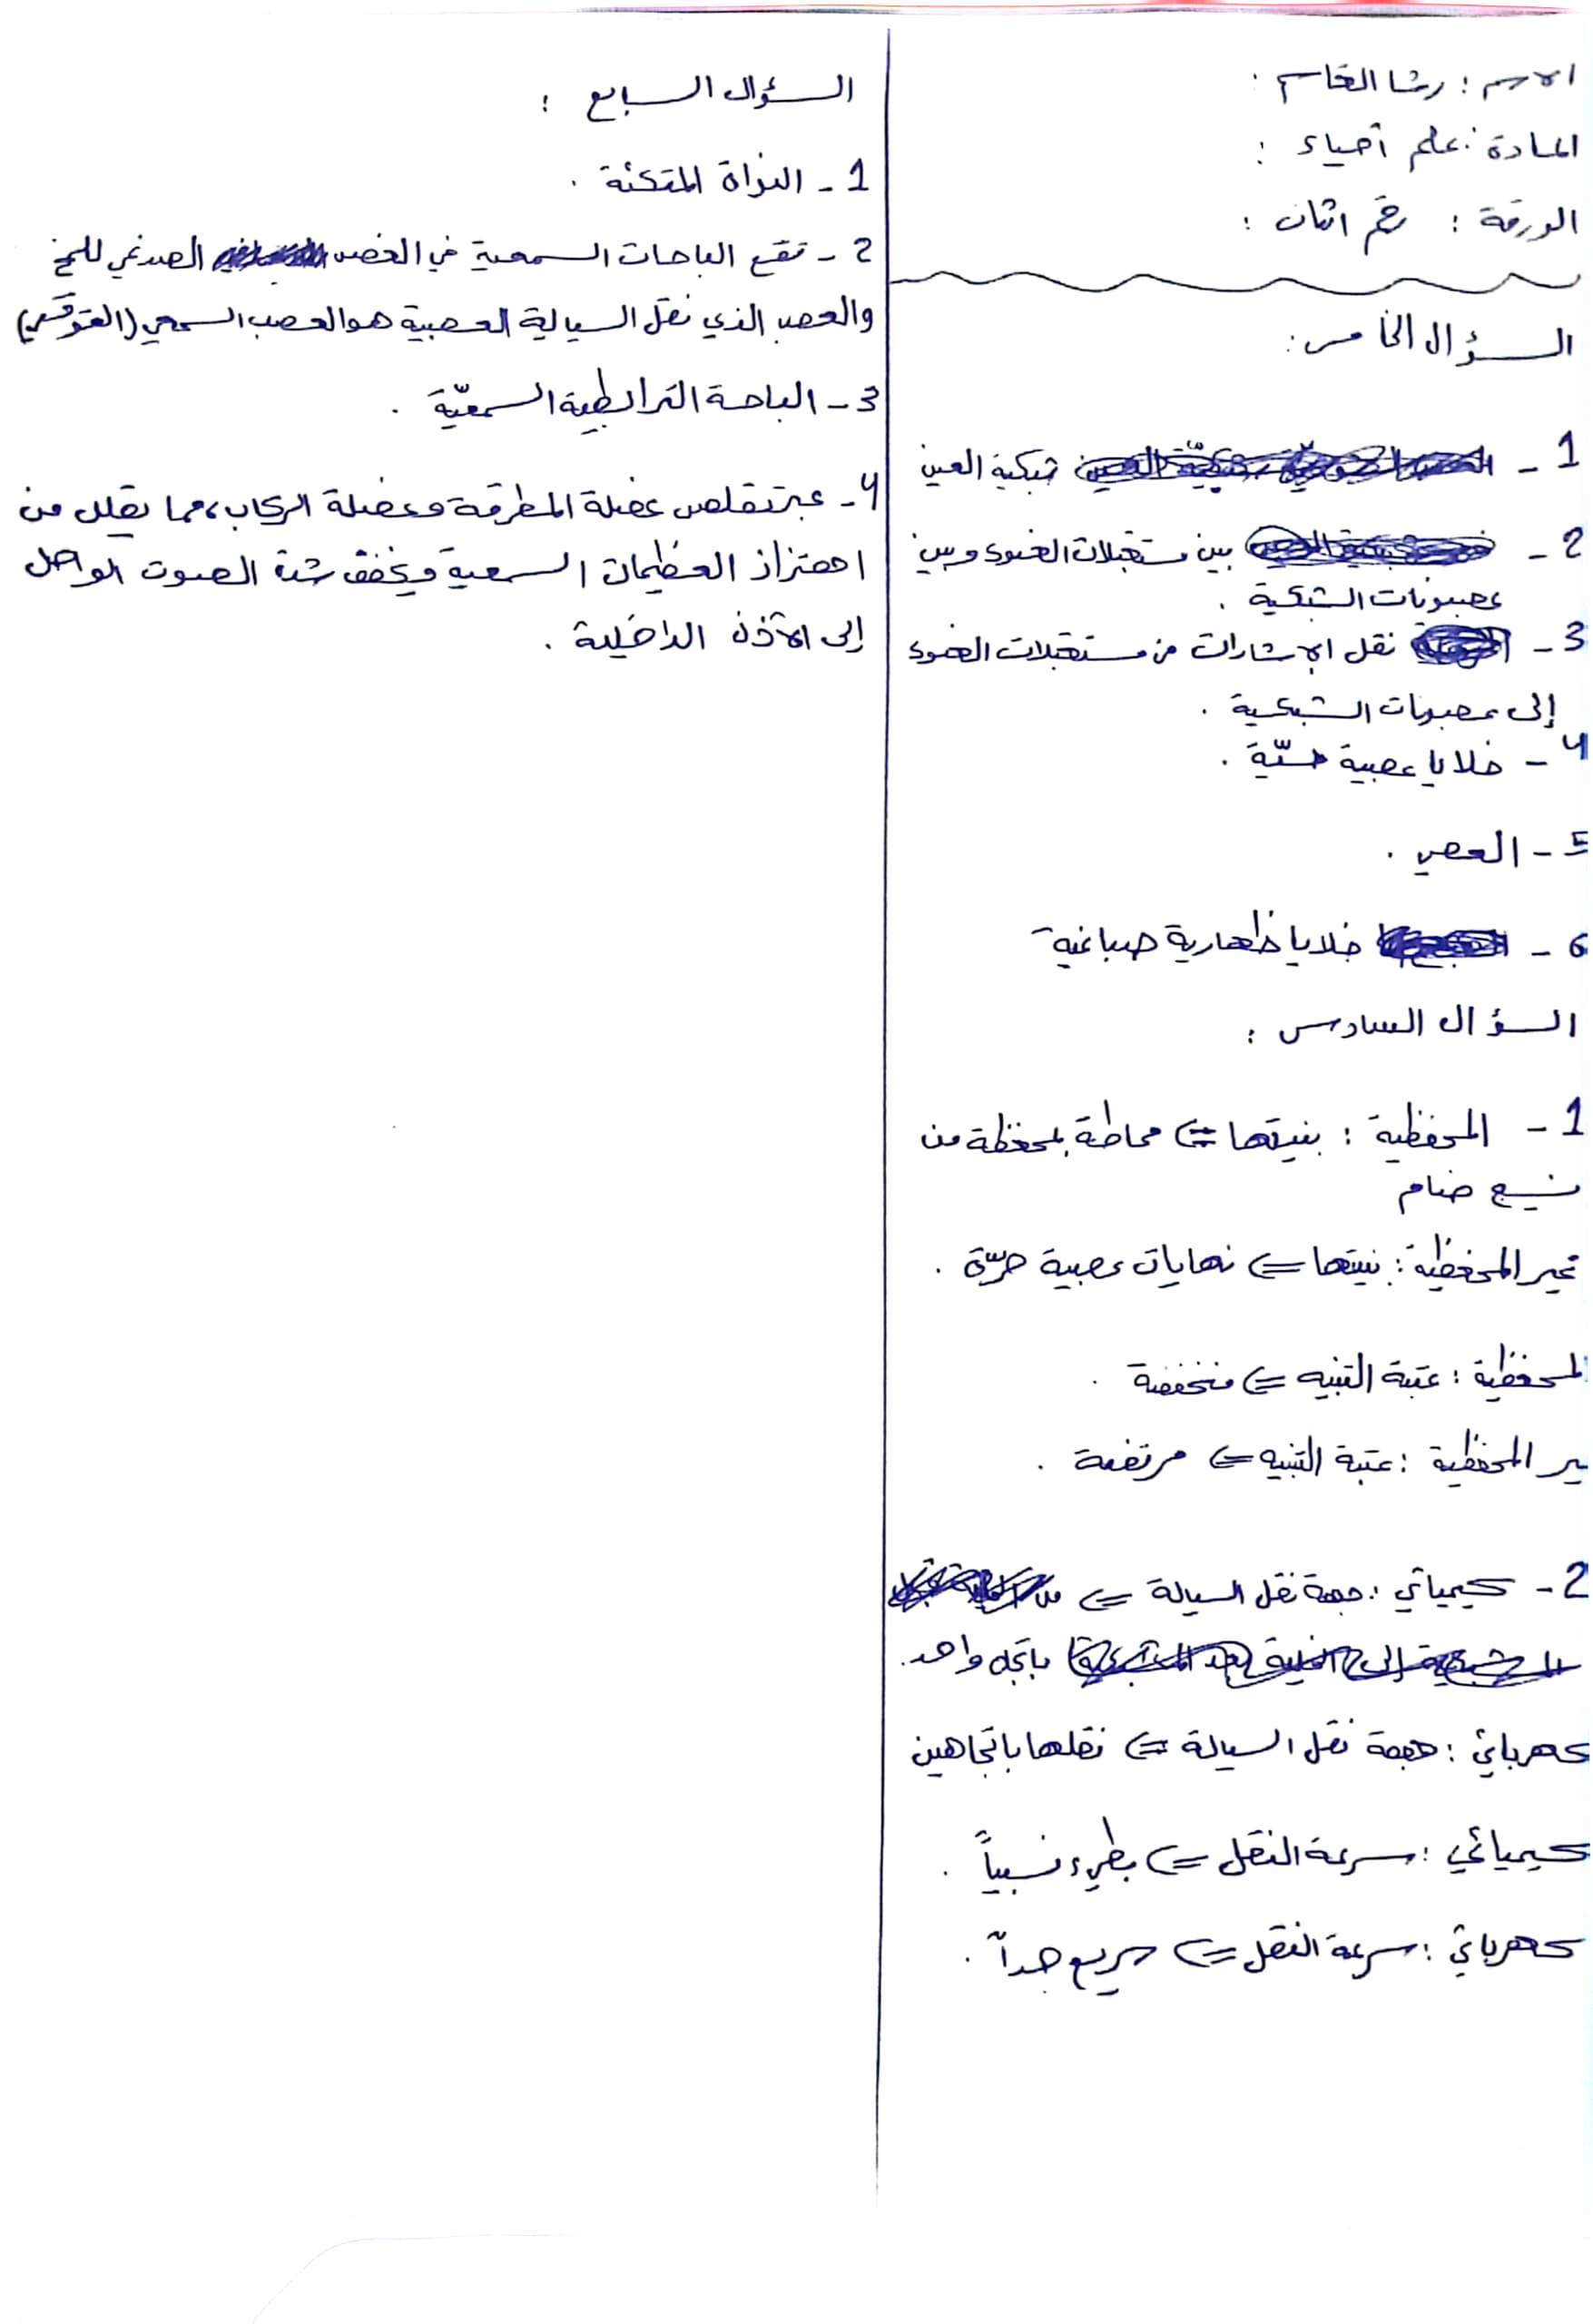 الاسم : رشا القاسم :
المادة : علم أحياء :
الورقة : رقم اثنان :
السؤال الخامس :
1 - شبكية العين
2 - بين مستقبلات الضوء وبين
عصبونات الشبكية .
3 - نقل الإشارات من مستقبلات الضوء
إلى عصبونات الشبكية .
4 - خلايا عصبية حسّية .
5 - العصي .
6 - خلايا ظهارية صباغية
السؤال السادس :
1 - المحفظية : بنيتها ⇐ محاطة بمحفظة من
نسيج ضام
غير المحفظية : بنيتها ⇐ نهايات عصبية حرّة .
لمحفظية : عتبة التنبيه ⇐ منخفضة .
ير المحفظية : عتبة التنبيه ⇐ مرتفعة .
2 - كيميائي : جهة نقل السيالة ⇐
باتجاه واحد .
كهربائي : جهة نقل السيالة ⇐ نقلها باتجاهين
كيميائي : سرعة النقل ⇐ بطيء نسبياً .
كهربائي : سرعة النقل ⇐ سريع جداً .
السؤال السابع :
1 - النواة المتكئة .
2 - تقع الباحات السمعية في الفص الصدغي للمخ
والعصب الذي نقل السيالة العصبية هو العصب السمعي (القوقعي)
3 - الباحة الترابطية السمعيّة .
4 - عبر تقلص عضلة المطرقة وعضلة الركاب، مما يقلل من
اهتزاز العظيمات السمعية ويخفف شدة الصوت الواصل
إلى الأذن الداخلية .